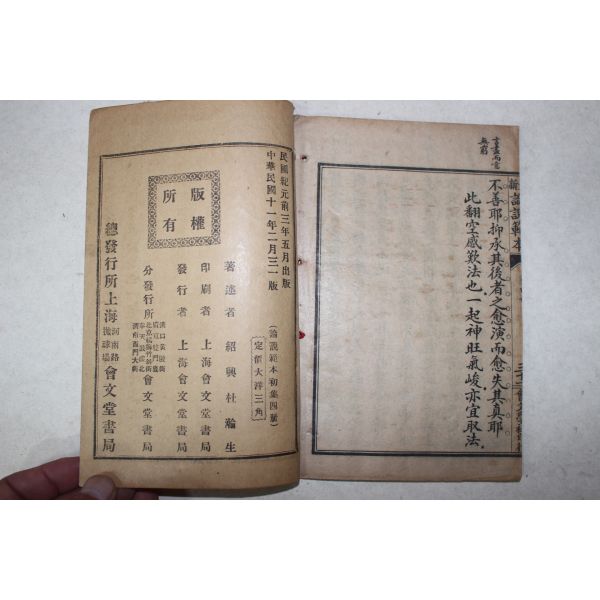 言盡而意
無窮
不善耶抑承其後者之愈演而愈失其真耶
此翻空感歎法也一起神旺氣峻亦宜取法
民國紀元前三年五月出版
中華民國十一年二月三一版
版權
所有
(論說範本初集四冊)
定價大洋三角
著述者 紹興杜瀚生
印刷者 上海會文堂書局
發行者 上海會文堂書局
分發行所 會文堂書局
總發行所上海河南路拋球場會文堂書局